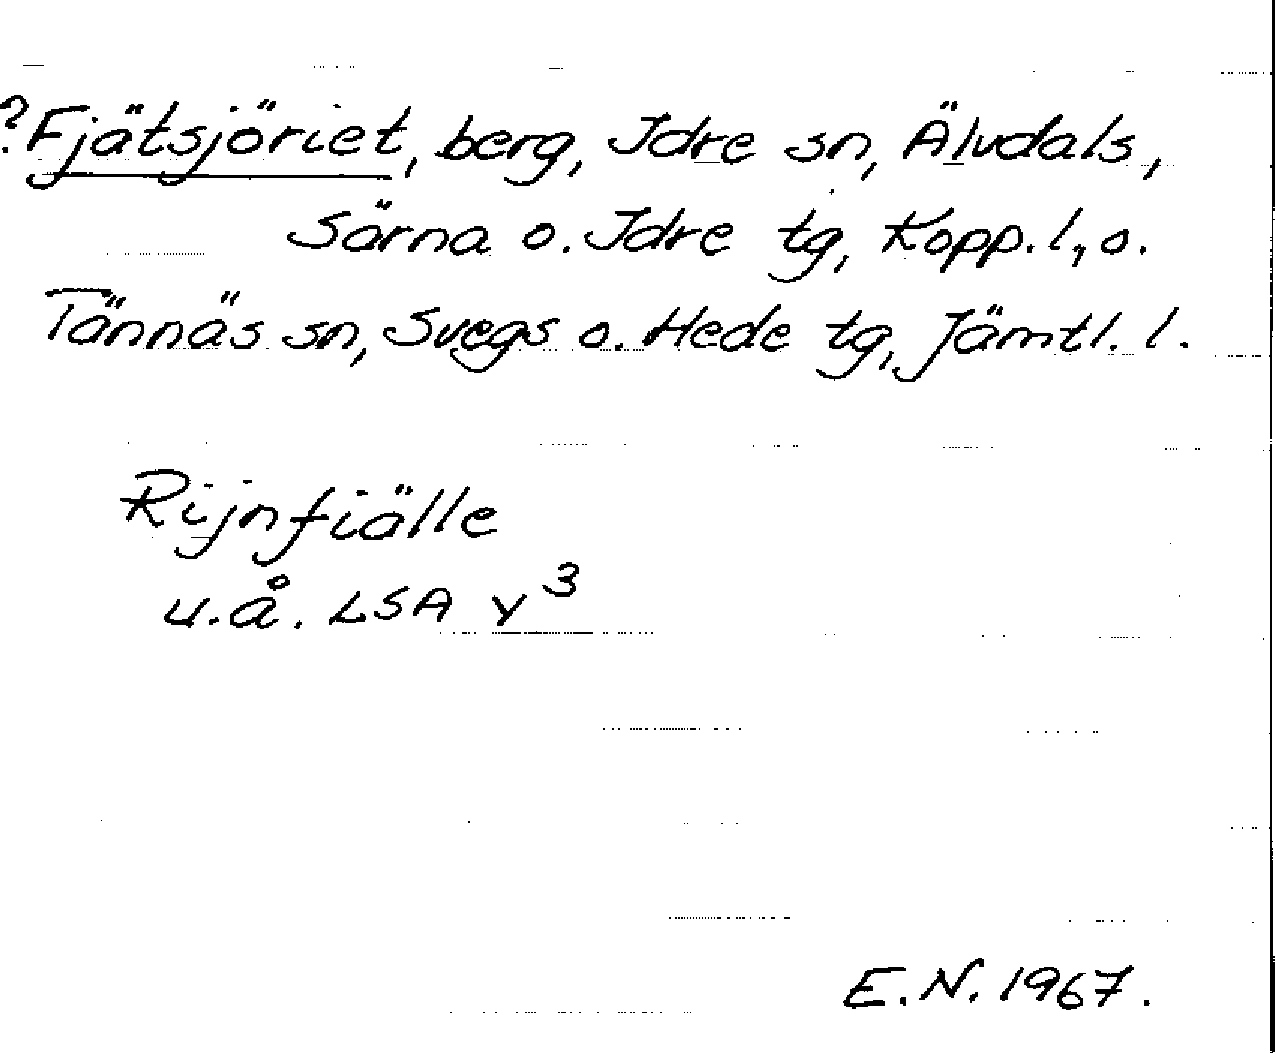 ?Fjätsjöriet, berg, Idre sn, Älvdals,
Särna o. Idre tg, Kopp. l., o.
Tännäs sn, Svegs o. Hede tg, Jämtl. l.
Rijnfiälle
u.å. LSA Y3
E.N. 1967.